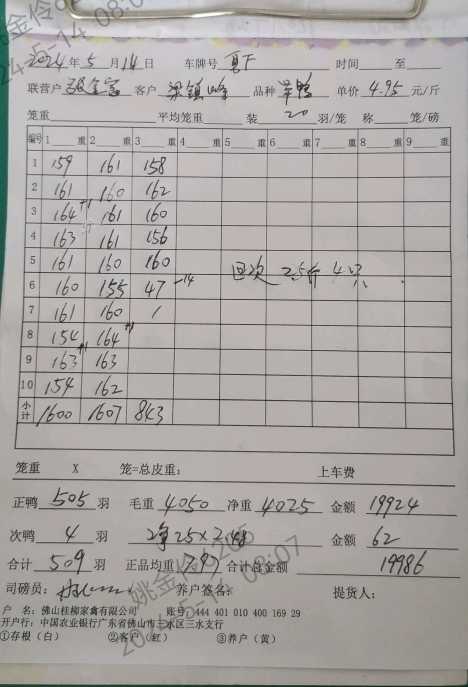 2024年5月14日 车牌号 时间 至
联营户 客户 梁镇峰 品种 单价 4.95 元/斤
笼重 平均笼重 装 20 羽/笼 称 笼/磅
编号 1 重 2 重 3 重 4 重 5 重 6 重 7 重 8 重 9 重
1 159 161 158
2 161 160 162
3 164 +1 161 160
4 163 161 156
5 161 160 160
回次 25斤 4只
6 160 155 47 -14
7 161 160 /
8 154 164 +1
9 163 +1 163
10 154 162
小计 1600 1607 843
笼重 X 笼=总皮重: 上车费
正鸭 505 羽 毛重 4050 净重 4025 金额 19924
次鸭 4 羽 净25x2.48 金额 62
合计 509 羽 正品均重 7.97 合计总金额 19986
司磅员: 养户签名: 提货人:
户 名: 佛山桂柳家禽有限公司 账号: 444 401 010 400 169 29
开户行: 中国农业银行广东省佛山市三水区三水支行
①存根(白) ②客户(红) ③养户(黄)
姚金伶
2024-5-14 08:07